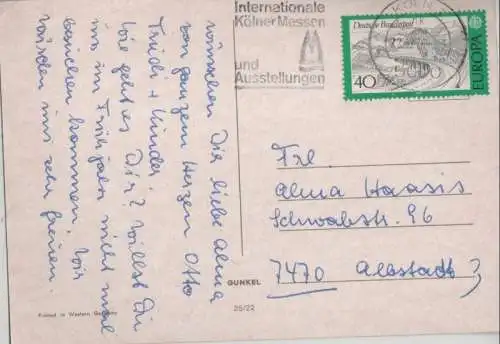 wünschen Dir liebe Alma
von ganzem Herzen Otto
Trudi + Kinder.
Wie geht es Dir? Willst Du
uns im Frühjahr nicht mal
besuchen kommen? Wir
würden uns sehr freuen.
Internationale
Kölner Messen
und
Ausstellungen
Deutsche Bundespost
40
EUROPA
Frl.
Alma Haasis
Schwabstr. 96
7470 Albstadt 3
GUNKEL
25/22
Printed in Western Germany